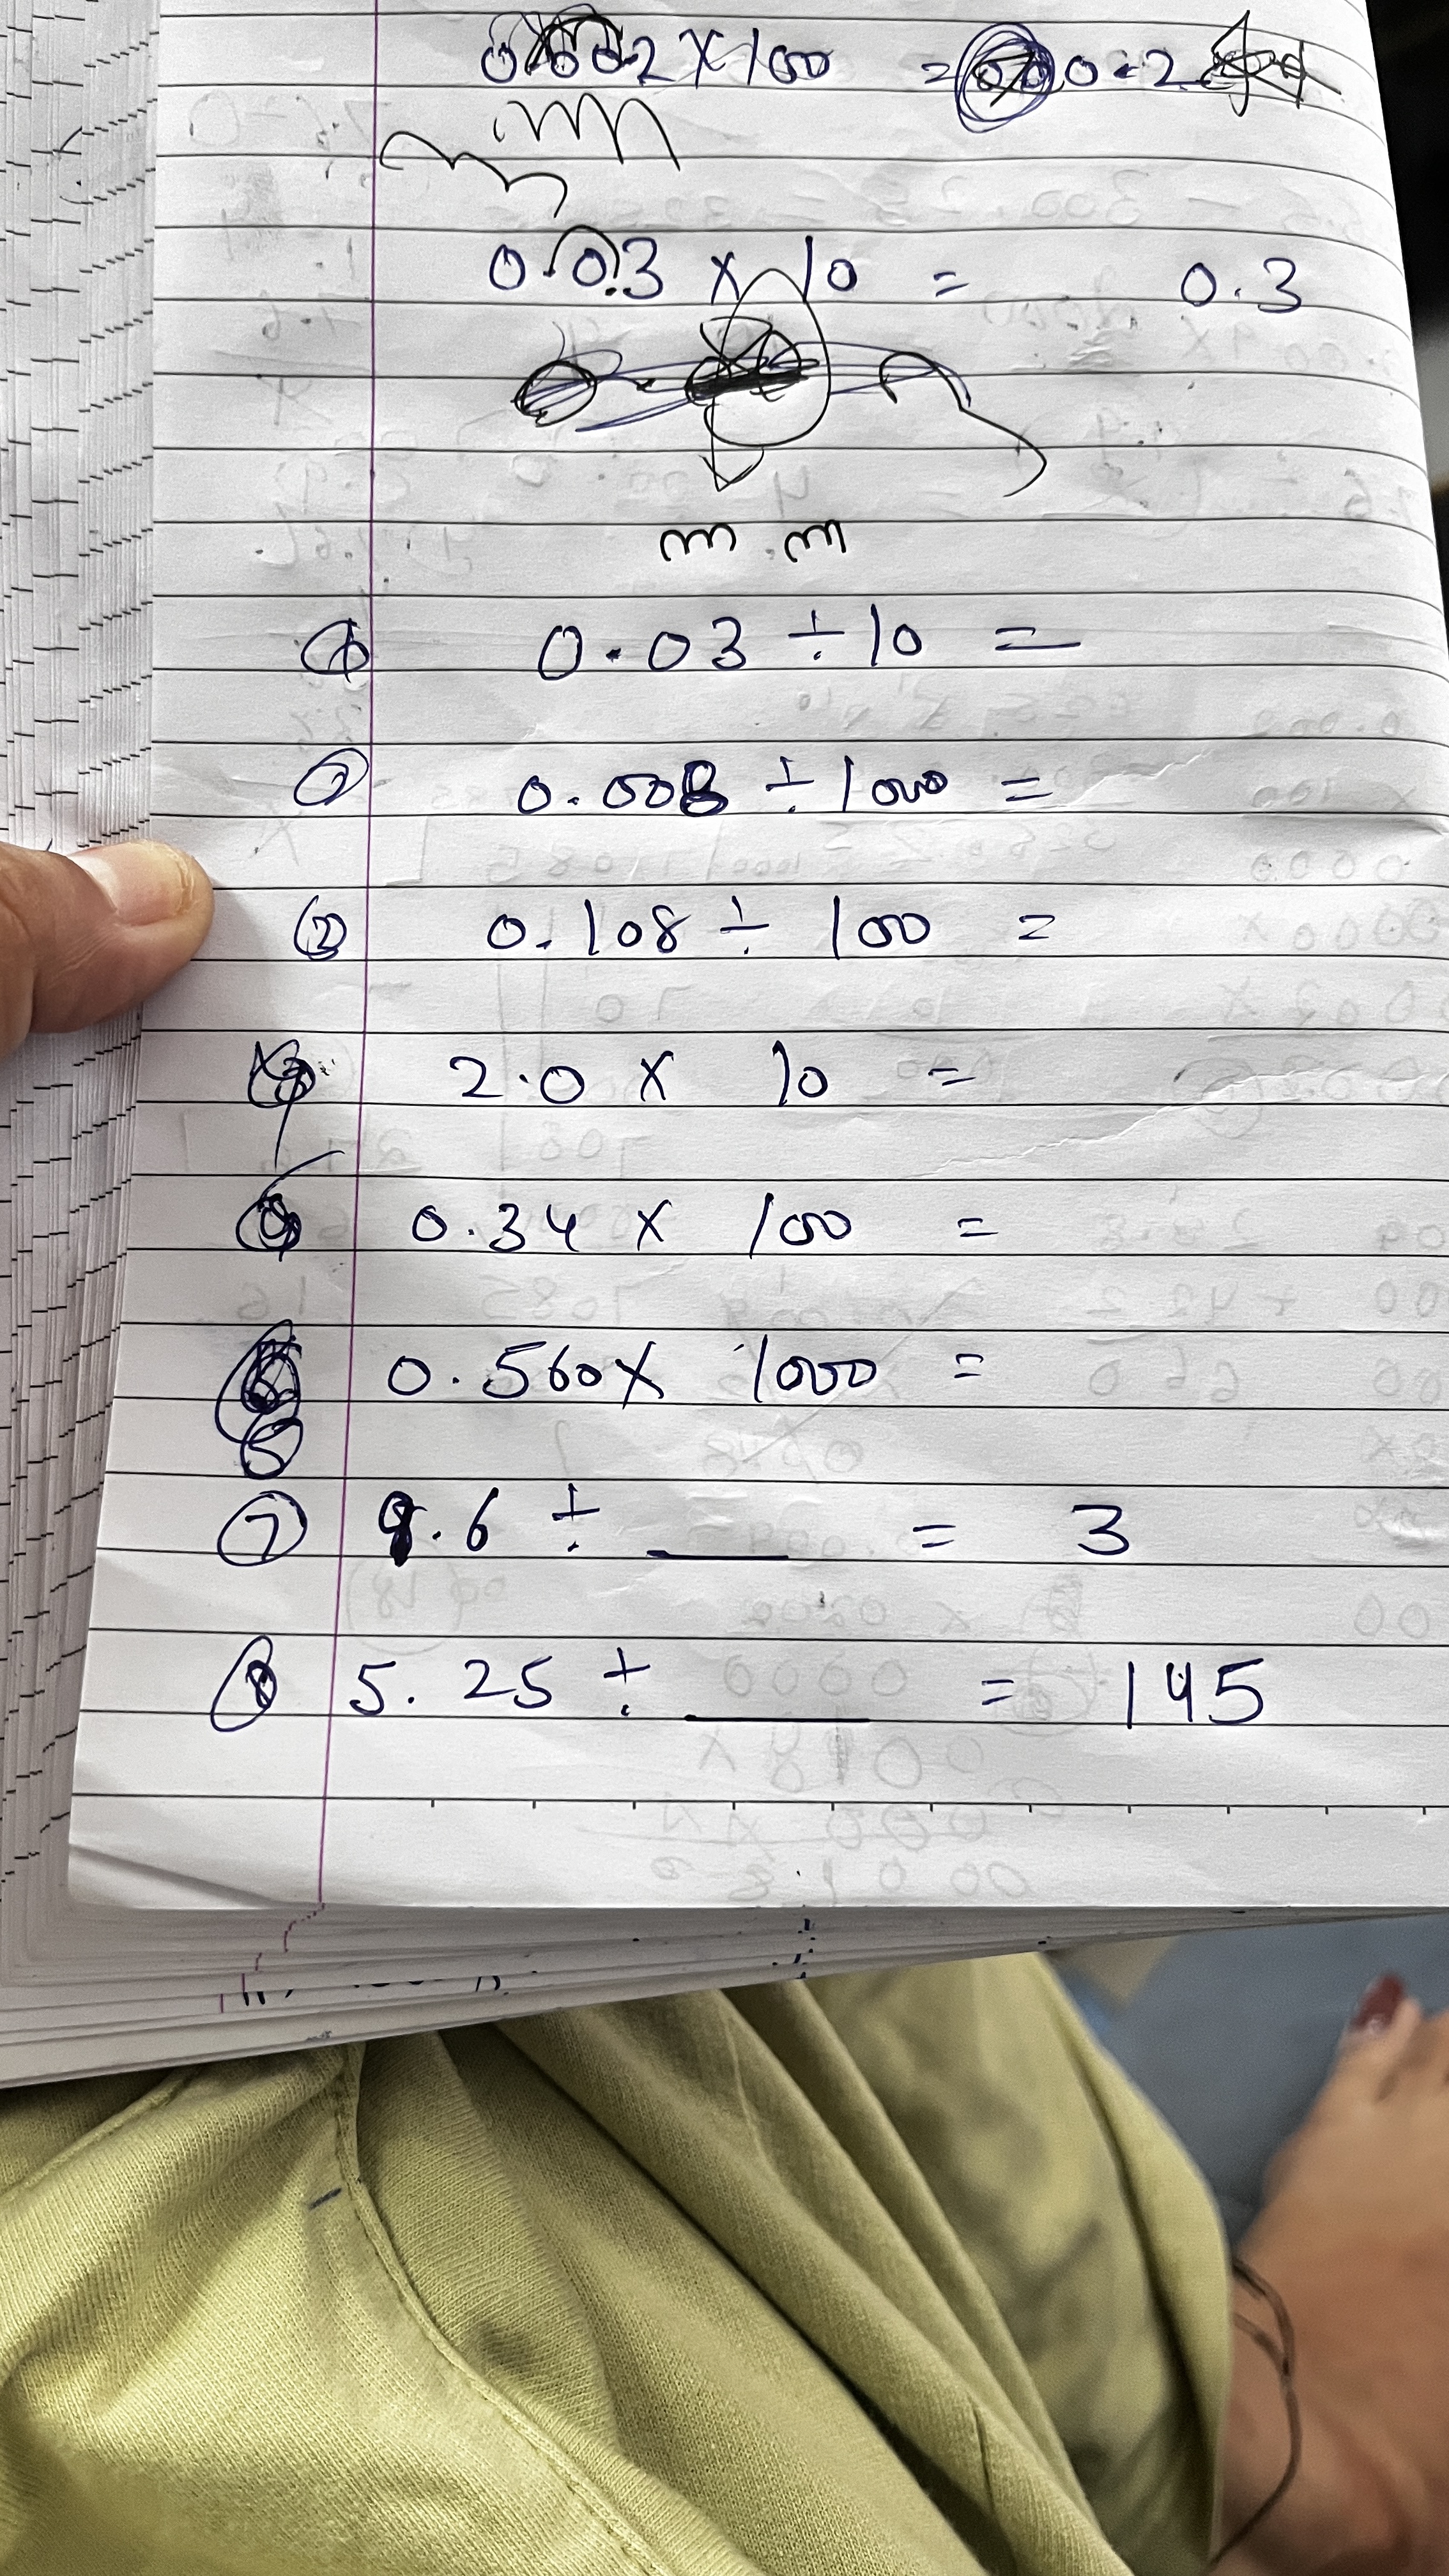 0.002 × 100 = 0.2
0.03 × 10 = 0.3
① 0.03 ÷ 10 =
② 0.008 ÷ 1000 =
③ 0.108 ÷ 100 =
2.0 × 10 =
0.34 × 100 =
0.560 × 1000 =
⑦ 9.6 ÷ ___ = 3
⑧ 5.25 ÷ ___ = 145